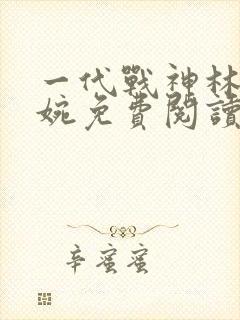 一代戰神林
婉免費閱讀
辛蜜蜜